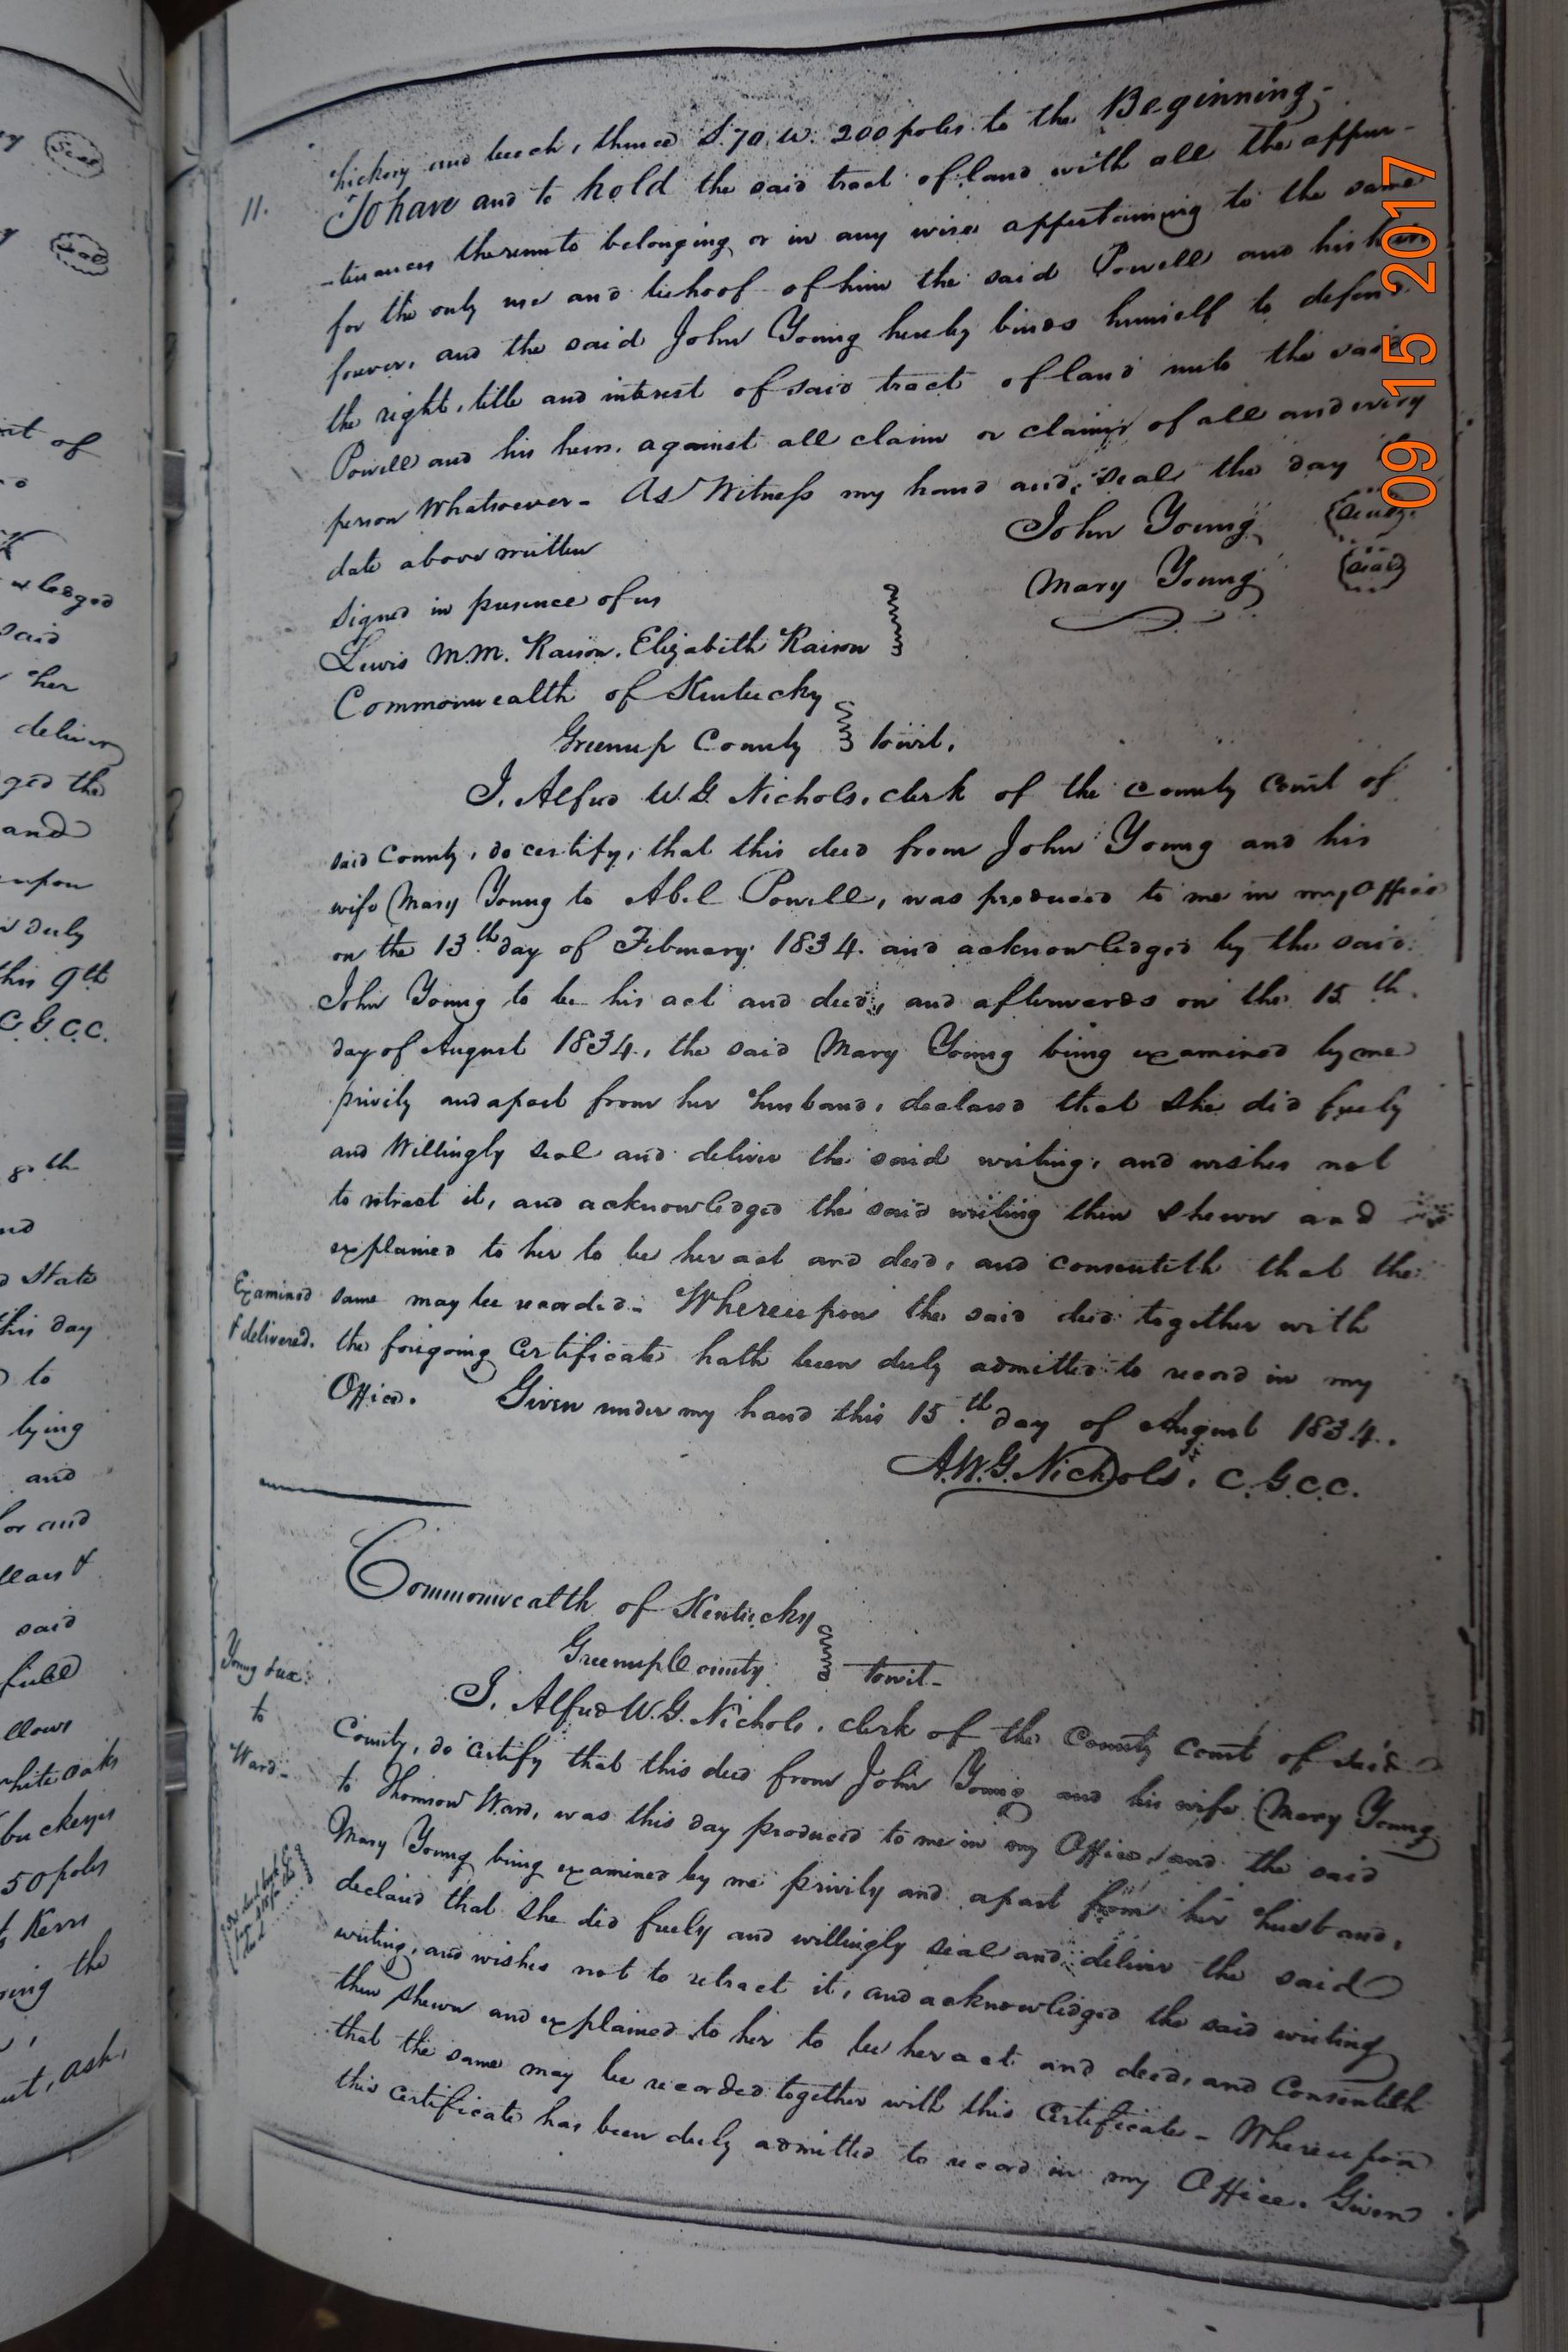 11.
hickory and beech, thence S. 70. W. 200 poles to the Beginning,
To have and to hold the said tract of land with all the appur-
-tinances thereunto belonging or in any wise appertaining to the same
for the only use and behoof of him the said Powell and his heirs
forever, and the said John Young hereby binds himself to defend
the right, title and interest of said tract of land unto the said
Powell and his heirs, against all claim or claims of all and every
person whatsoever - As Witness my hand and seal the day
date above written
John Young Seal
Mary Young Seal
Signed in presence of us
Lewis M.M. Raison. Elizabeth Raison
Commonwealth of Kentucky
Greenup County towit.
I, Alfred W. G. Nichols, clerk of the county court of
said County, do certify, that this deed from John Young and his
wife Mary Young to Abel Powell, was produced to me in my Office
on the 13th day of February 1834. and acknowledged by the said
John Young to be his act and deed, and afterwards on the 15th
day of August 1834, the said Mary Young being examined by me
privily and apart from her husband, declared that she did freely
and willingly seal and deliver the said writing, and wishes not
to retract it, and acknowledged the said writing then shewn and
explained to her to be her act and deed, and consenteth that the
Examined same may be recorded - Whereupon the said deed together with
& delivered. the foregoing certificate hath been duly admitted to record in my
Office. Given under my hand this 15th day of August 1834.
A.W.G. Nichols, C.G.C.C.
Commonwealth of Kentucky
Greenup County towit -
Young & ux.
to
Ward -
I, Alfred W. G. Nichols, clerk of the County Court of said
County, do certify that this deed from John Young and his wife Mary Young
to Thomson Ward, was this day produced to me in my Office, and the said
Mary Young being examined by me privily and apart from her husband,
declared that she did freely and willingly seal and deliver the said
writing, and wishes not to retract it, and acknowledged the said writing
then shewn and explained to her to be her act and deed, and consenteth
that the same may be recorded together with this certificate - Whereupon
this certificate has been duly admitted to record in my Office. Given
09 15 2017
Seal
Seal
of
her
deliver
ged the
and
upon
duly
this 9th
C.G.C.C.
8th
State
this day
to
lying
and
for and
said
full
white oaks
buckeyes
50 poles
Kerrs
the
ash,